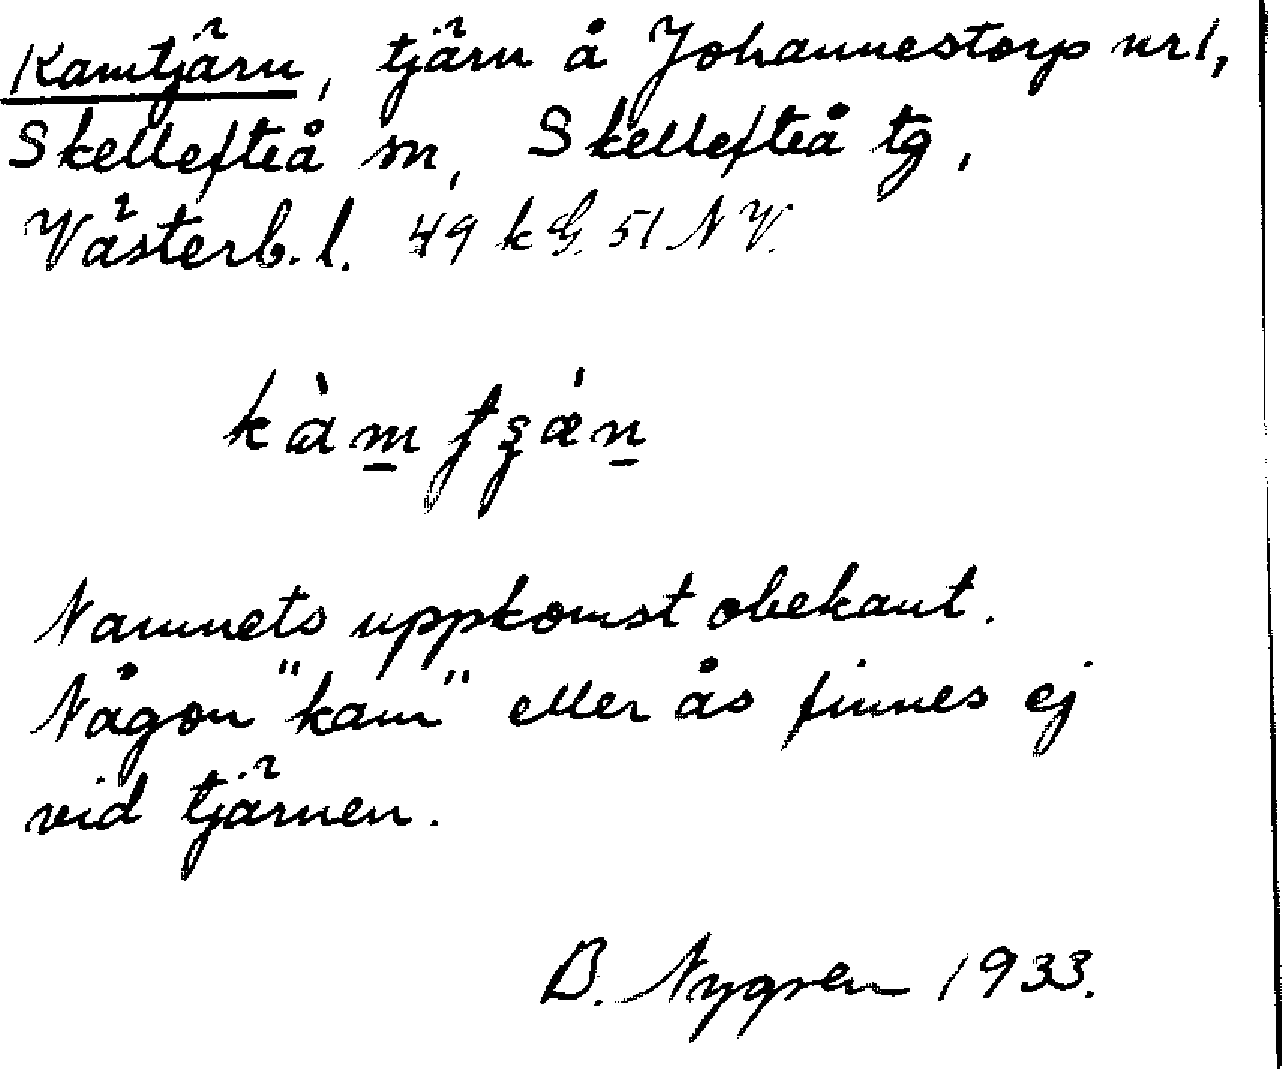 Kamtjärn, tjärn å Johannestorp nr 1,
Skellefteå sn, Skellefteå tg,
Västerb. l. 49 k G. 51 NV.
Namnets uppkomst obekant.
Någon "kam" eller ås finnes ej
vid tjärnen.
B. Nygren 1933.